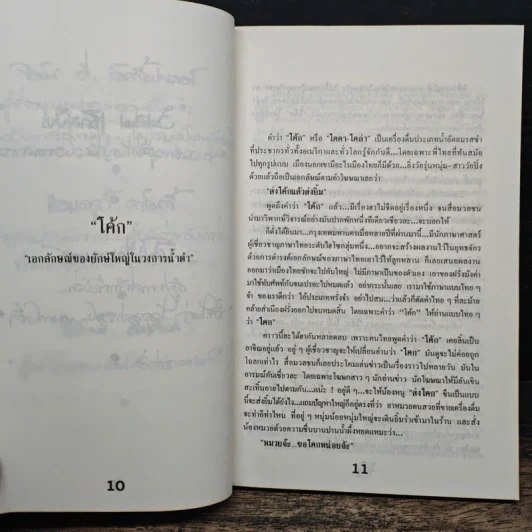 "โค้ก"
"เอกลักษณ์ของยักษ์ใหญ่ในวงการน้ำดำ"
10
คำว่า "โค้ก" หรือ "โคคา-โคล่า" เป็นเครื่องดื่มประเภทน้ำอัดลมรสซ่า
ที่ประชากรทั่วทั้งอเมริกาและทั่วโลกรู้จักกันดี...โดยเฉพาะพี่ไทยที่ทันสมัย
ไปทุกรูปแบบ เมืองนอกเขามีอะไรเมืองไทยก็มีด้วย...ยิ่งวัยรุ่นหนุ่ม-สาววัยปิ๊ง
ด้วยแล้วถือเป็นเอกลักษณ์ตามคำโฆษณาเลยว่า
"ส่งโค้กแล้วส่งยิ้ม"
พูดถึงคำว่า "โค้ก" แล้ว...มีเรื่องฮาไม่จืดอยู่เรื่องหนึ่ง จนสื่อมวลชน
นำมาวิพากษ์วิจารณ์อย่างมันปากพักหนึ่งทีเดียวเชียวละ...จะบอกให้
ก็ดังได้ยินมา...กรุงเทพมหานครเมื่อหลายปีที่ผ่านมานี้...มีนักภาษาศาสตร์
ผู้เชี่ยวชาญภาษาไทยระดับไฮโซกลุ่มหนึ่ง...อยากจะสร้างผลงานไว้ในยุทธจักร
ด้วยการดำรงค์เอกลักษณ์ของภาษาไทยเอาไว้ให้ลูกหลาน ก็เลยเสนอผลงาน
ออกมาว่าเมืองไทยชักจะไปกันใหญ่ ไม่มีภาษาเป็นของตัวเอง เอาของฝรั่งมังค่า
มาใช้ทับศัพท์กันจนเปรอะไปหมดแล้ว อย่ากระนั้นเลย เรามาใช้ภาษาแบบไทย ๆ
ของเราดีกว่า ไอ้ประเภทหรั่งจ๋า อย่าไปสน...ว่าแล้วก็ดัดคำไทย ๆ ที่ละม้าย
คล้ายสำเนียงฝรั่งออกไปจนหมดสิ้น โดยเฉพาะคำว่า "โค้ก" ให้อ่านแบบไทย ๆ
ว่า "โคก"
คราวนี้ละได้ฮากันหลายตลบ เพราะคนไทยพูดคำว่า "โค้ก" เคยลิ้นเป็น
อาจิณอยู่แล้ว อยู่ ๆ ผู้เชี่ยวชาญจะให้เปลี่ยนอ่านว่า "โคก" มันดูจะไม่ค่อยถูก
โฉลกเท่าไร สื่อมวลชนก็เลยประโคมเล่นข่าวเป็นเรื่องราวไปหลายวัน มันใน
อารมณ์กันเชียวละ โดยเฉพาะโฆษกสาว ๆ นักอ่านข่าว นักโฆษณาให้มีอันเขิน
สะเทิ้นอายไปตามกัน...แน่ะ ! อยู่ดี ๆ...จะให้น้องหนู "ส่งโคก" ขืนเป็นแบบ
นี้จะส่งยิ้มได้ยังไง...แถมปัญหาใหญ่ก็อยู่ตรงที่ว่า อาหมวยคนสวยที่ขายเครื่องดื่ม
จะทำยีท่าไหน ที่อยู่ ๆ หนุ่มน้อยหนุ่มใหญ่จะเดินยิ้มร่าเข้ามาในร้าน และสั่ง
น้องหมวยด้วยความชื่นบานปานน้ำผึ้งหยดแหมะว่า...
"หมวยจ๊ะ...ขอโคกหน่อยจ๊ะ"
11